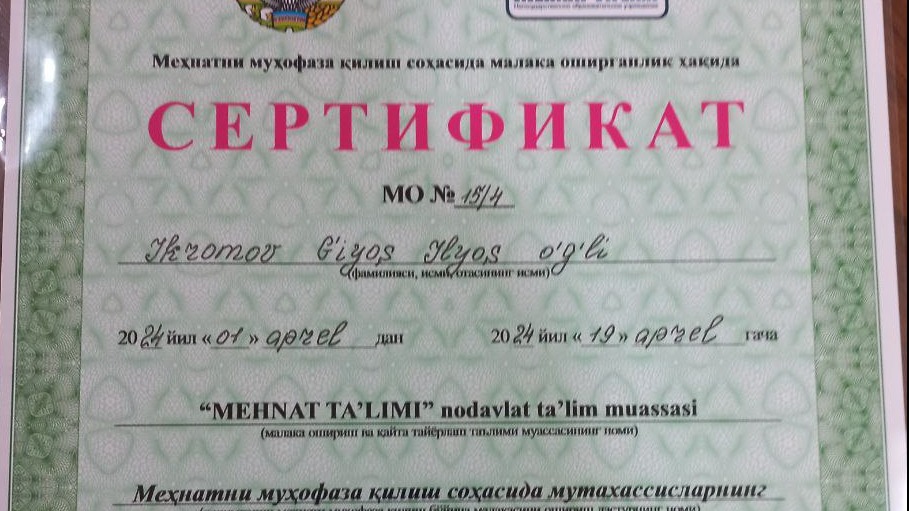 Меҳнатни муҳофаза қилиш соҳасида малака оширганлик ҳақида
СЕРТИФИКАТ
МО № 15/4
Ikromov G'iyos Ilyos o'g'li
(фамилияси, исми, отасининг исми)
2024 йил «01» aprel дан 2024 йил «19» aprel гача
“MEHNAT TA’LIMI” nodavlat ta’lim muassasi
(малака ошириш ва қайта тайёрлаш таълими муассасининг номи)
Меҳнатни муҳофаза қилиш соҳасида мутахассисларнинг